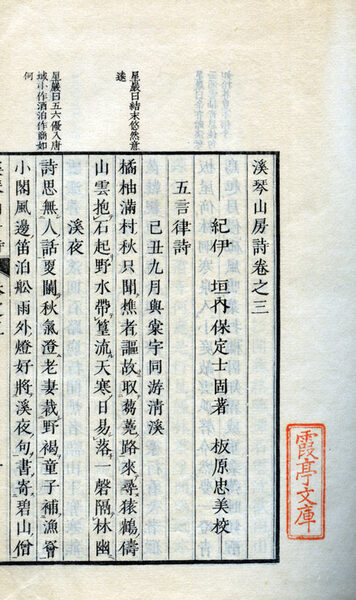 溪琴山房詩卷之三
紀伊 垣內保定士固著 板原忠美校
五言律詩
己丑九月與棠宇同游清溪
星巖曰結末悠然意
遠
橘柚滿村秋只聞樵者謳故取蒭蕘路來尋猿鶴儔
山雲抱石起野水帶篁流天寒日易落一磬隔林幽
溪夜
星巖曰五六優入唐
域小作酒泊作商如
何
詩思無人話夏闌秋氣澄老妻裁野褐童子補漁罾
小閣風邊笛泊舩雨外燈好將溪夜句書寄碧山僧
霞亭文庫